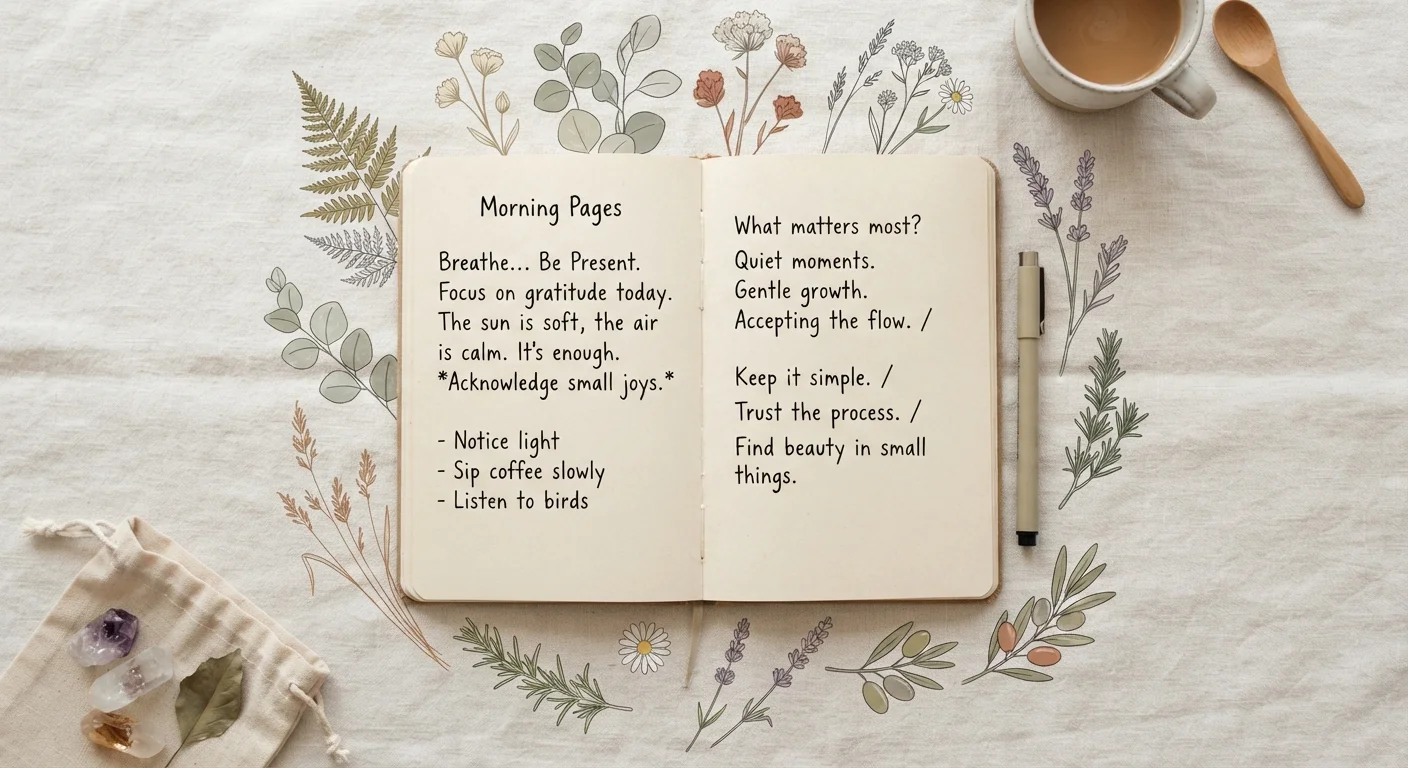 Morning Pages
Breathe... Be Present.
Focus on gratitude today.
The sun is soft, the air
is calm. It's enough.
*Acknowledge small joys.*
- Notice light
- Sip coffee slowly
- Listen to birds
What matters most?
Quiet moments.
Gentle growth.
Accepting the flow. /
Keep it simple. /
Trust the process. /
Find beauty in small
things.